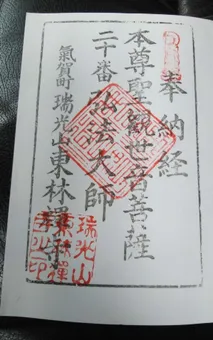 奉納経
本尊聖観世音菩薩
二十番弘法大師
氣賀町 瑞光山東林禅寺
瑞光山
東林禅
寺之印